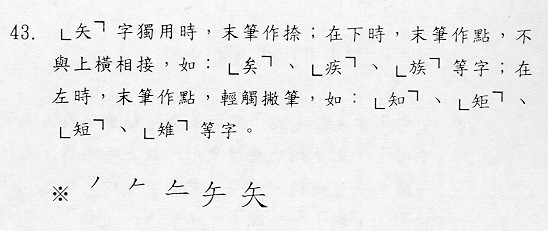 43. 「矢」字獨用時，末筆作捺；在下時，末筆作點，不
與上橫相接，如：「矣」、「疾」、「族」等字；在
左時，末筆作點，輕觸撇筆，如：「知」、「矩」、
「短」、「雉」等字。
※ ㇒ 𠂉 矢